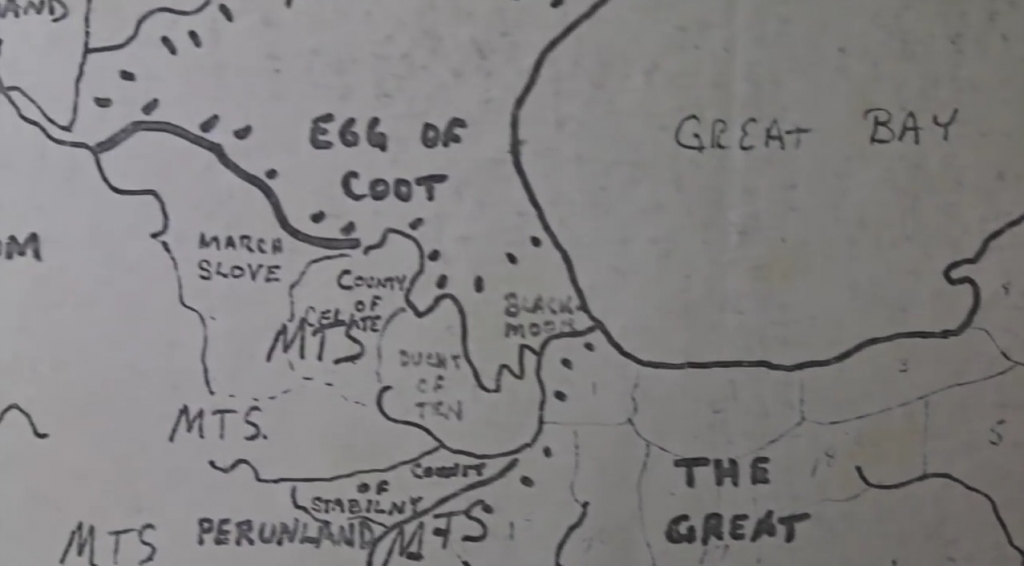 AND
EGG OF
COOT
GREAT BAY
OM
MARCH
SLOVE
COUNTY
OF
CELATE
MTS
BLACK
DUCHY
OF
TEN
MTS.
COUNTY
OF
STABILNY
PERUNLAND
MTS
MTS
THE
GREAT
1
3
5
1